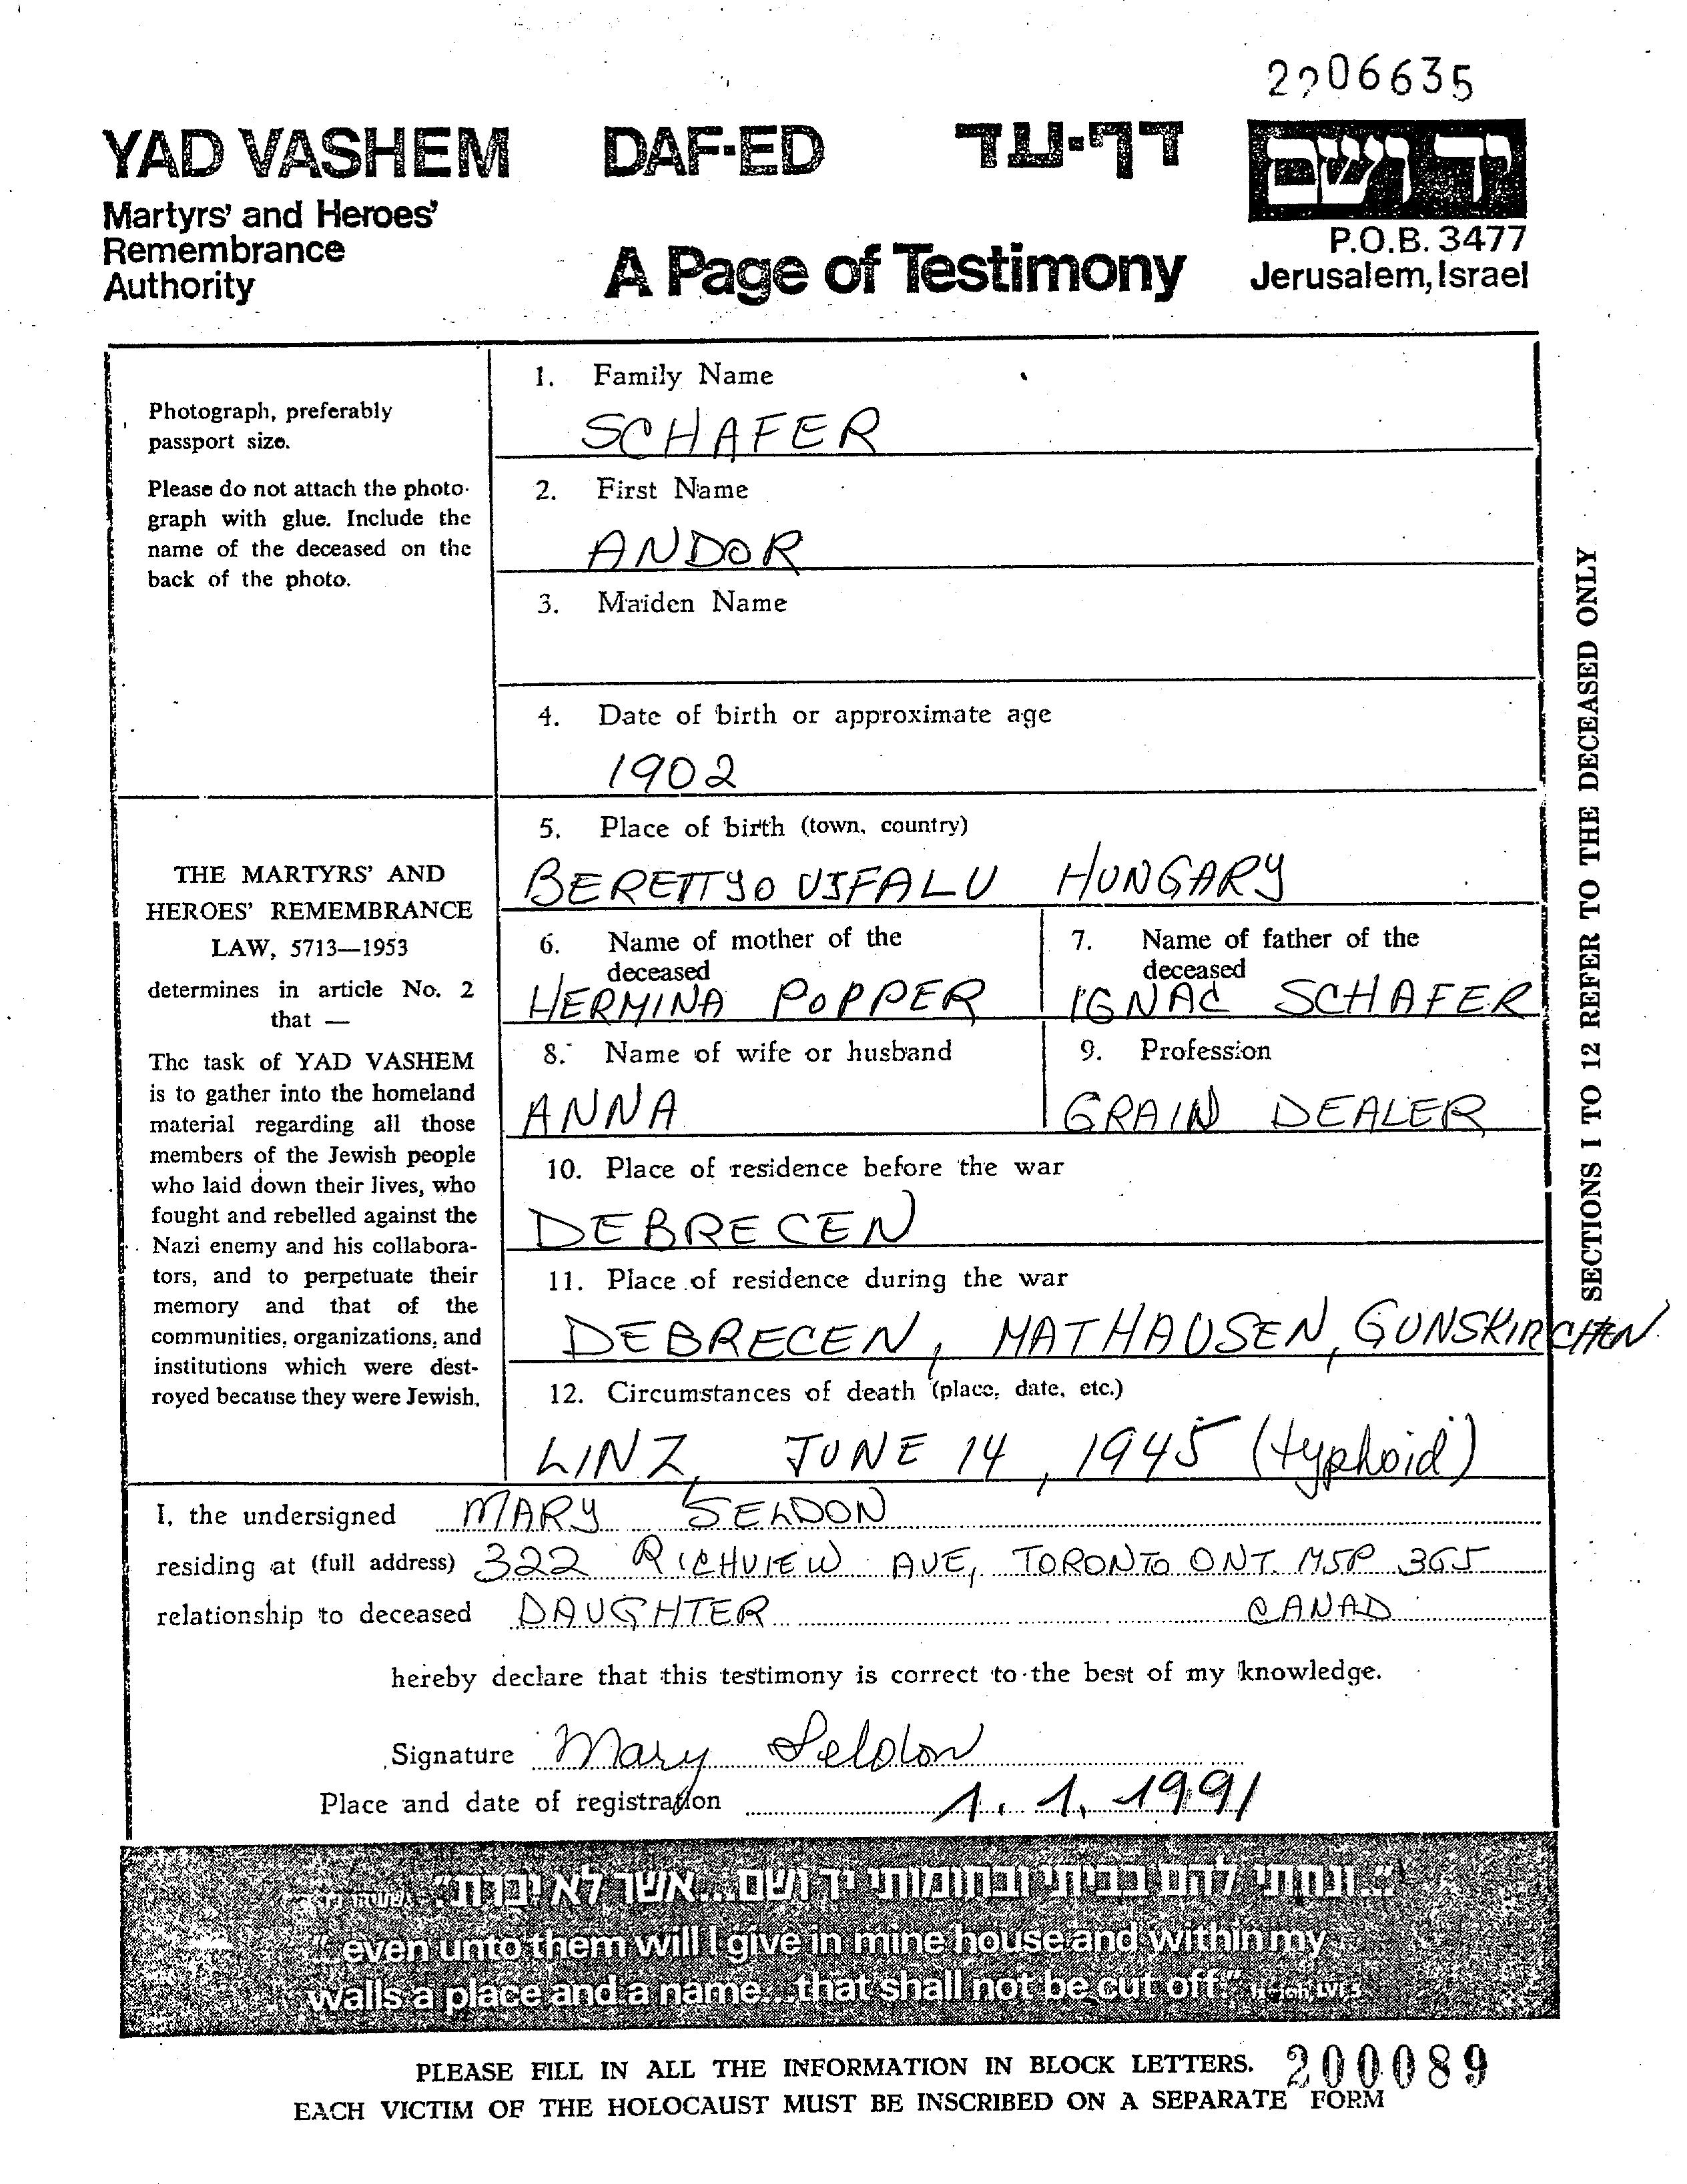 2206635
YAD VASHEM DAF-ED דף-עד יד ושם
Martyrs' and Heroes'
Remembrance
Authority
A Page of Testimony
P.O.B. 3477
Jerusalem, Israel
Photograph, preferably
passport size.
Please do not attach the photo-
graph with glue. Include the
name of the deceased on the
back of the photo.
THE MARTYRS' AND
HEROES' REMEMBRANCE
LAW, 5713—1953
determines in article No. 2
that —
The task of YAD VASHEM
is to gather into the homeland
material regarding all those
members of the Jewish people
who laid down their lives, who
fought and rebelled against the
Nazi enemy and his collabora-
tors, and to perpetuate their
memory and that of the
communities, organizations, and
institutions which were dest-
royed because they were Jewish.
1. Family Name
SCHAFER
2. First Name
ANDOR
3. Maiden Name
4. Date of birth or approximate age
1902
5. Place of birth (town, country)
BERETTYO UJFALU HUNGARY
6. Name of mother of the
deceased
HERMINA POPPER
7. Name of father of the
deceased
IGNAC SCHAFER
8. Name of wife or husband
ANNA
9. Profession
GRAIN DEALER
10. Place of residence before the war
DEBRECEN
11. Place of residence during the war
DEBRECEN, MATHAUSEN, GUNSKIRCHEN
12. Circumstances of death (place, date, etc.)
LINZ, JUNE 14, 1945 (typhoid)
SECTIONS 1 TO 12 REFER TO THE DECEASED ONLY
I, the undersigned MARY SELDON
residing at (full address) 322 RICHVIEW AVE, TORONTO ONT. M5P 3G5
relationship to deceased DAUGHTER CANAD
hereby declare that this testimony is correct to the best of my knowledge.
Signature Mary Seldon
Place and date of registration 1. 1. 1991
"...ונתתי להם בביתי ובחומותי יד ושם...אשר לא יכרת".
"...even unto them will I give in mine house and within my
walls a place and a name...that shall not be cut off." Isaiah, LVI.5
PLEASE FILL IN ALL THE INFORMATION IN BLOCK LETTERS. 200089
EACH VICTIM OF THE HOLOCAUST MUST BE INSCRIBED ON A SEPARATE FORM